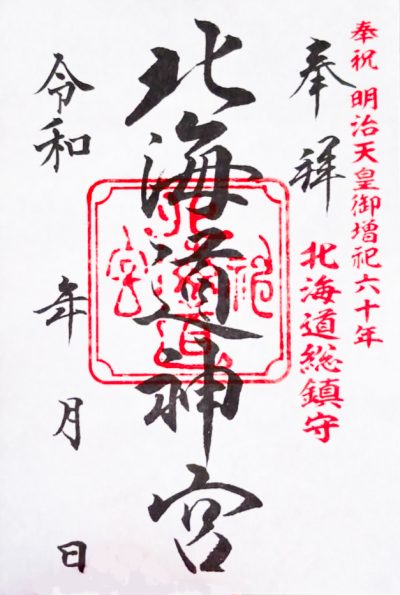 奉祝 明治天皇御増祀六十年
北海道総鎮守
奉拝
北海道神宮
令和 年 月 日